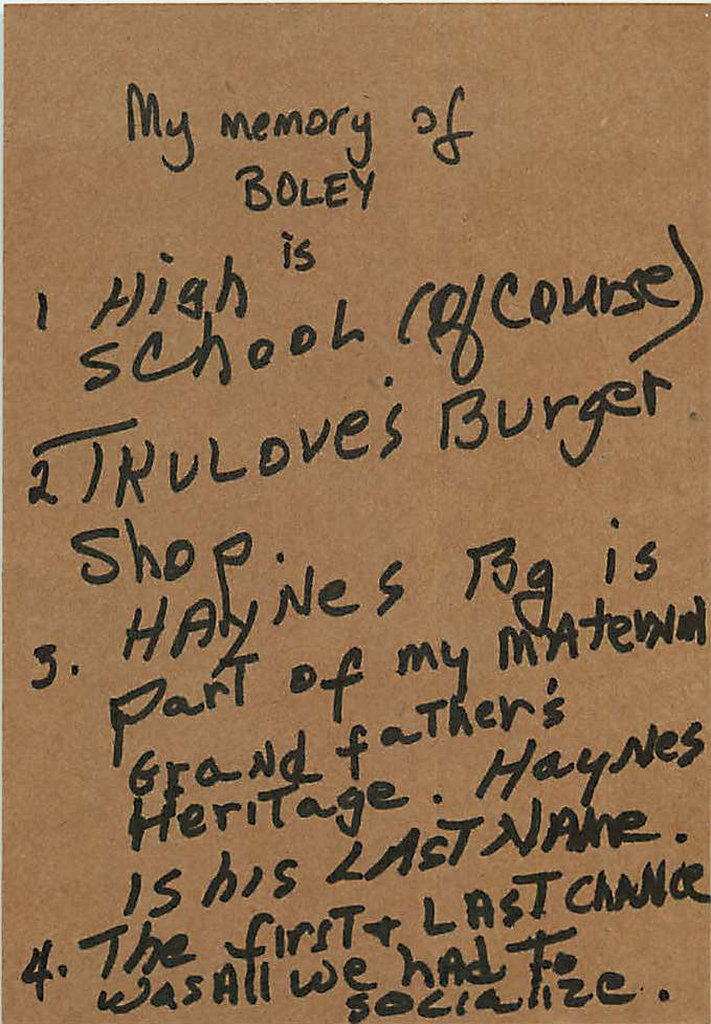 My memory of
BOLEY
is
1 High
School (Of Course)
2 TRULOVE'S Burger
Shop.
3. HAYNES Bg is
part of my MAternal
Grandfather's
Heritage. HayNes
is his LAST NAMe.
4. The first & LAST CHANCe
was All we hAd To
socialize.